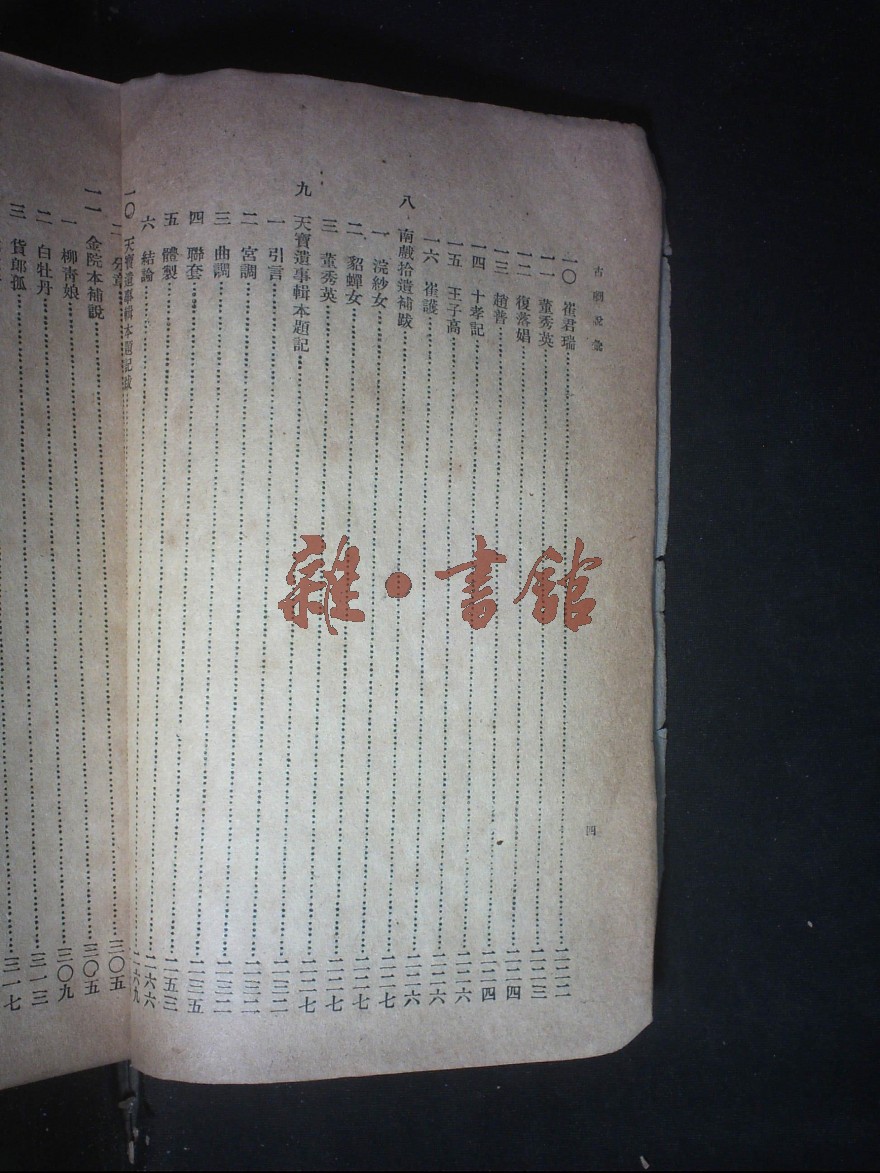 古劇說彙
四
一〇 崔君瑞……二二二
一一 董秀英……二二三
一二 復落娼……二二四
一三 趙普……二二四
一四 十孝記……二二六
一五 王子高……二二六
一六 崔護……二二六
八 南戲拾遺補跋……二二七
一 浣紗女……二二七
二 貂蟬女……二二七
三 董秀英……二二七
九 天寶遺事輯本題記……二三二
一 引言……二三二
二 宮調……二三二
三 曲調……二三五
四 聯套……二五三
五 體製……二六六
六 結論……二六九
一〇 天寶遺事輯本題記
二……三〇五
一一 金院本補說……三〇五
一 柳青娘……三〇九
二 白牡丹……三一三
三 貨郎孤……三一七
雜·書館